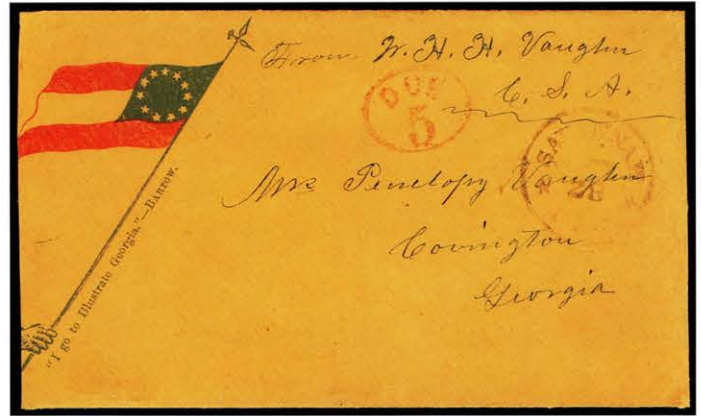 From W. H. H. Vaughn
C. S. A.
DUE
5
Mrs Penelopy Vaughn
Covington
Georgia
"I go to Illustrate Georgia."—Bartow.